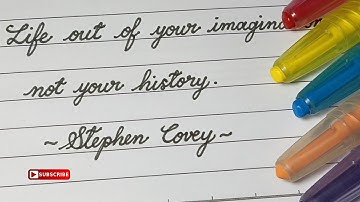 Life out of your imagination
not your history.
~Stephen Covey~
SUBSCRIBE